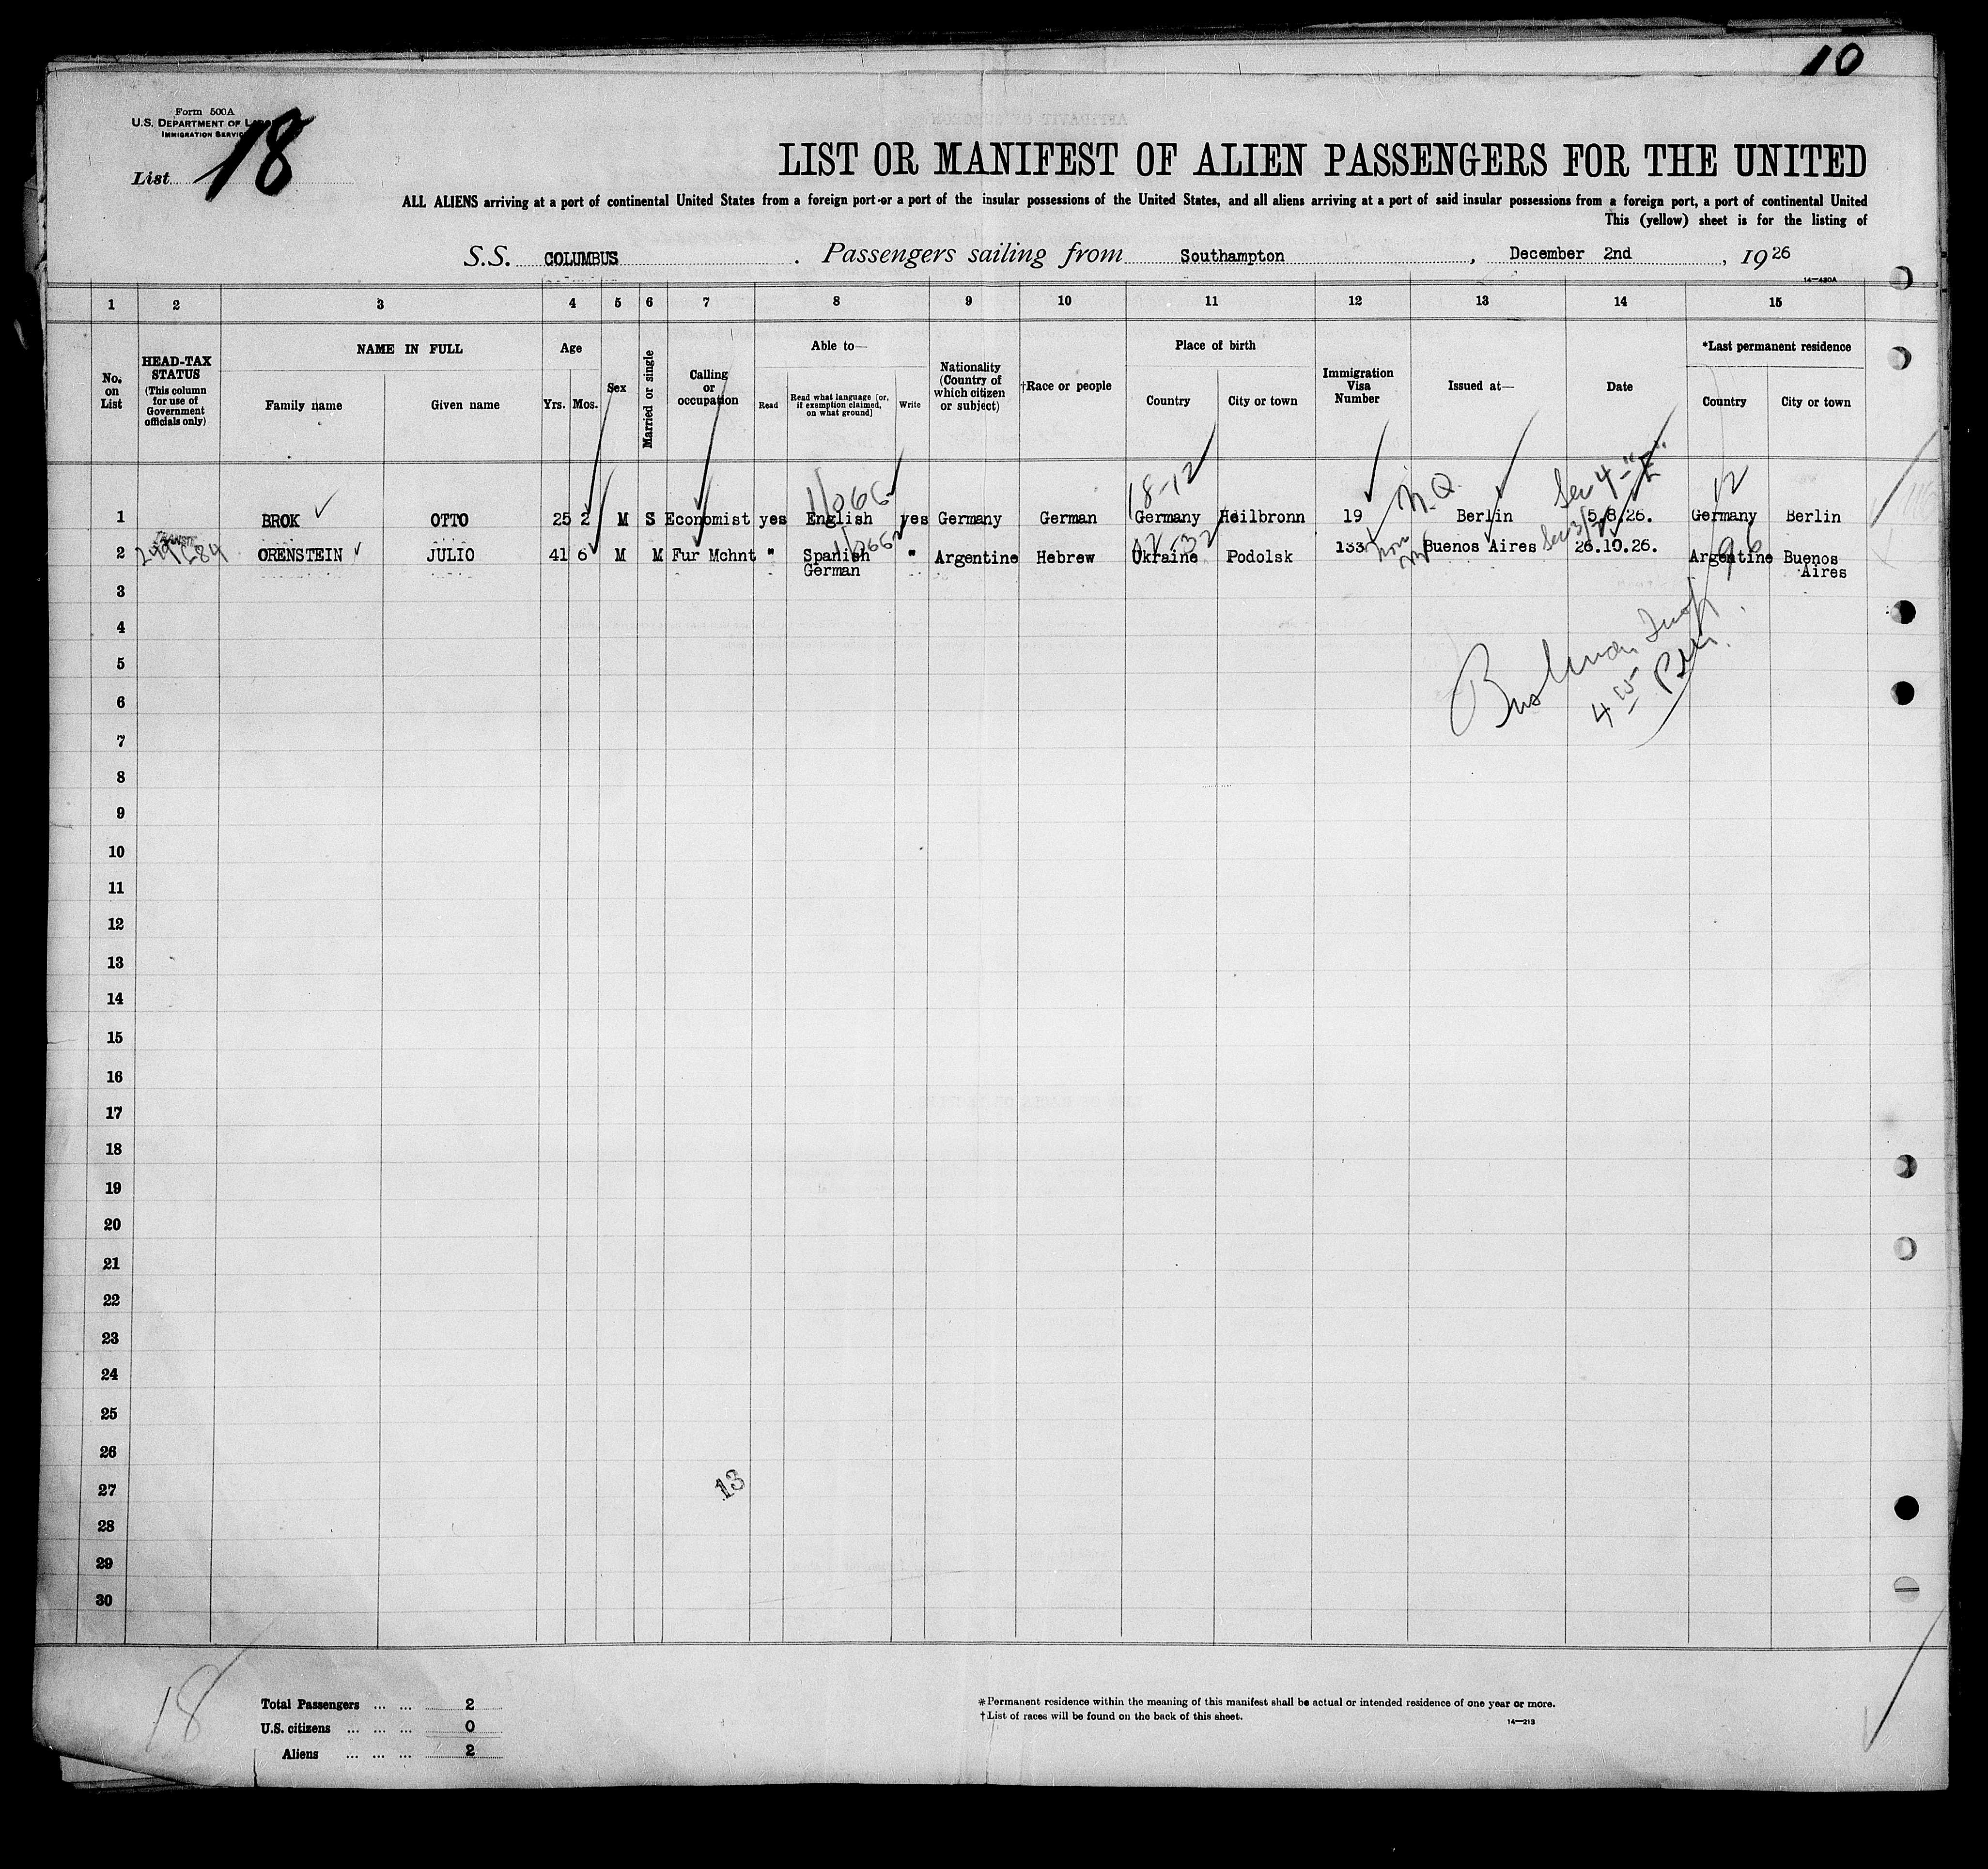 10
Form 500A
U.S. DEPARTMENT OF
IMMIGRATION SERVICE
List 18
LIST OR MANIFEST OF ALIEN PASSENGERS FOR THE UNITED
ALL ALIENS arriving at a port of continental United States from a foreign port or a port of the insular possessions of the United States, and all aliens arriving at a port of said insular possessions from a foreign port, a port of continental United
This (yellow) sheet is for the listing of
S.S. COLUMBUS . Passengers sailing from Southampton , December 2nd , 1926
14—480A
1 2 3 4 5 6 7 8 9 10 11 12 13 14 15
No. on List
HEAD-TAX STATUS (This column for use of Government officials only)
NAME IN FULL
Family name Given name
Age
Yrs. Mos.
Sex
Married or single
Calling or occupation
Able to—
Read
Read what language [or, if exemption claimed, on what ground]
Write
Nationality (Country of which citizen or subject)
†Race or people
Place of birth
Country City or town
Immigration Visa Number
Issued at—
Date
*Last permanent residence
Country City or town
1/066 18-12 N.Q. Sec 4- 12
1 BROK OTTO 25 2 M S Economist yes English yes Germany German Germany Heilbronn 19 Berlin 5.8.26. Germany Berlin
2 ORENSTEIN JULIO 41 6 M M Fur Mchnt " Spanish " Argentine Hebrew Ukraine Podolsk 133 Buenos Aires 26.10.26. Argentine Buenos
German Aires
3
4
5
6
7
8
9
10
11
12
13
14
15
16
17
18
19
20
21
22
23
24
25
26
27
13
28
29
30
18
Total Passengers ... ... 2
U.S. citizens ... ... ... 0
Aliens ... ... ... 2
*Permanent residence within the meaning of this manifest shall be actual or intended residence of one year or more.
†List of races will be found on the back of this sheet.
14—213